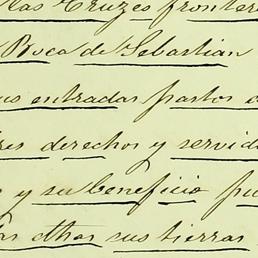 las Cruzes fronter
Boca de Sebastian
us entradas pastos
res derechos y servid
y su beneficio pu
dhas sus tierras